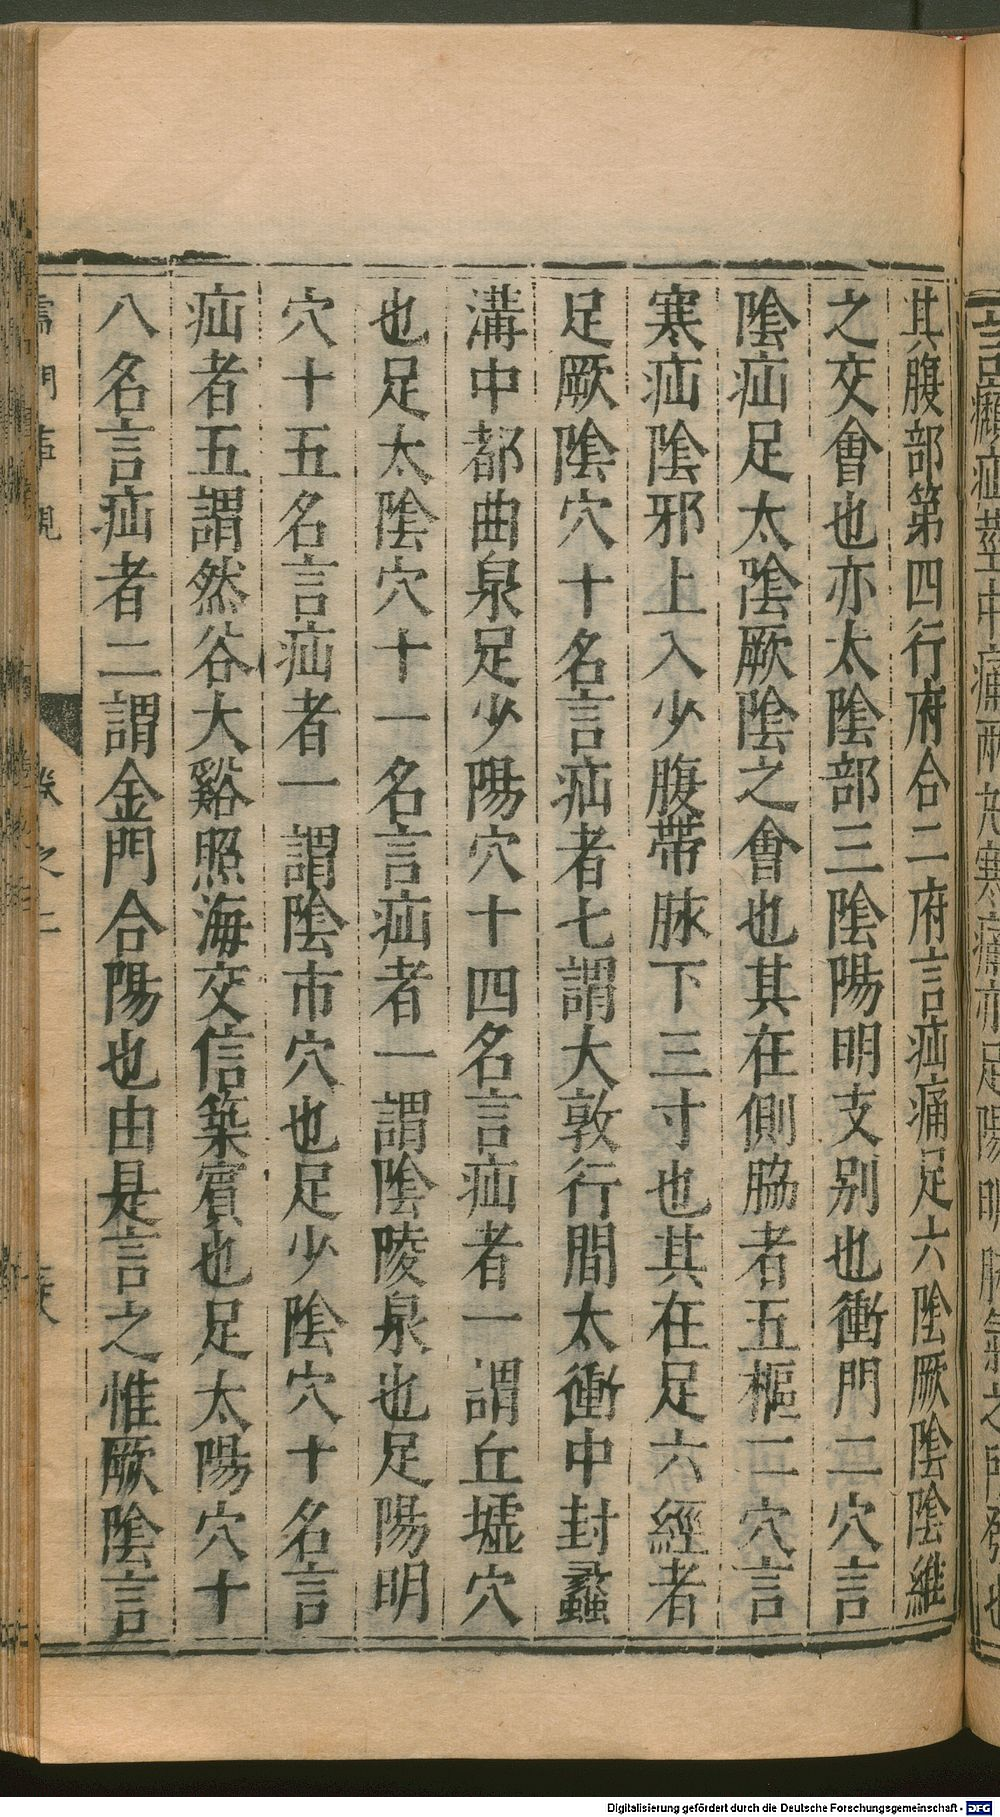 其腹部第四行府合二府言疝痛足六陰厥陰陰維
之交會也亦太陰部三陰陽明支别也衝門二穴言
陰疝足太陰厥陰之會也其在側脇者五樞二穴言
寒疝陰邪上入少腹帶脉下三寸也其在足六經者
足厥陰穴十名言疝者七謂大敦行間太衝中封蠡
溝中都曲泉足少陽穴十四名言疝者一謂丘墟穴
也足太陰穴十一名言疝者一謂陰陵泉也足陽明
穴十五名言疝者一謂陰市穴也足少陰穴十名言
疝者五謂然谷大谿照海交信築賓也足太陽穴十
八名言疝者二謂金門合陽也由是言之惟厥陰言
儒門事親 卷之二
Digitalisierung gefördert durch die Deutsche Forschungsgemeinschaft - DFG